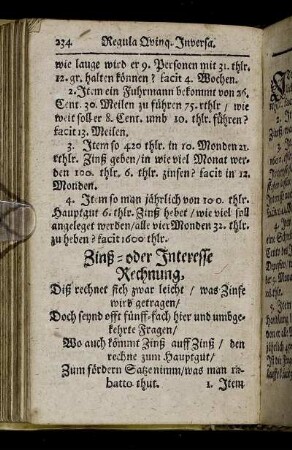 234 Regula Qvinq. Inversa.
wie lange wird er 9. Personen mit 31. thlr.
12. gr. halten können? facit 4. Wochen.
2. Item ein Fuhrmann bekomt von 26.
Cent. 30. Meilen zu führen 75. rthlr / wie
weit soll er 8. Cent. umb 10. thlr. führen?
facit 13. Meilen.
3. Item so 420 thlr. in 10. Monden 21.
rthlr. Zinß geben / in wie viel Monat wer-
den 100. thlr. 6. thlr. zinsen? facit in 12.
Monden.
4. Item so man jährlich von 100. thlr.
Hauptgut 6. thlr. Zinß hebet / wie viel soll
angeleget werden / alle vier Monden 32. thlr.
zu heben? facit 1600 thlr.
Zinß- oder Interesse
Rechnung,
Diß rechnet sich zwar leicht / was Zinse
wird getragen /
Doch seynd offt fünff-fach hier und umbge-
kehrte Fragen /
Wo auch kömmt Zinß auff Zinß / den
rechne zum Hauptgut /
Zum fördern Satze nimm / was man ra-
batto thut. 1. Item